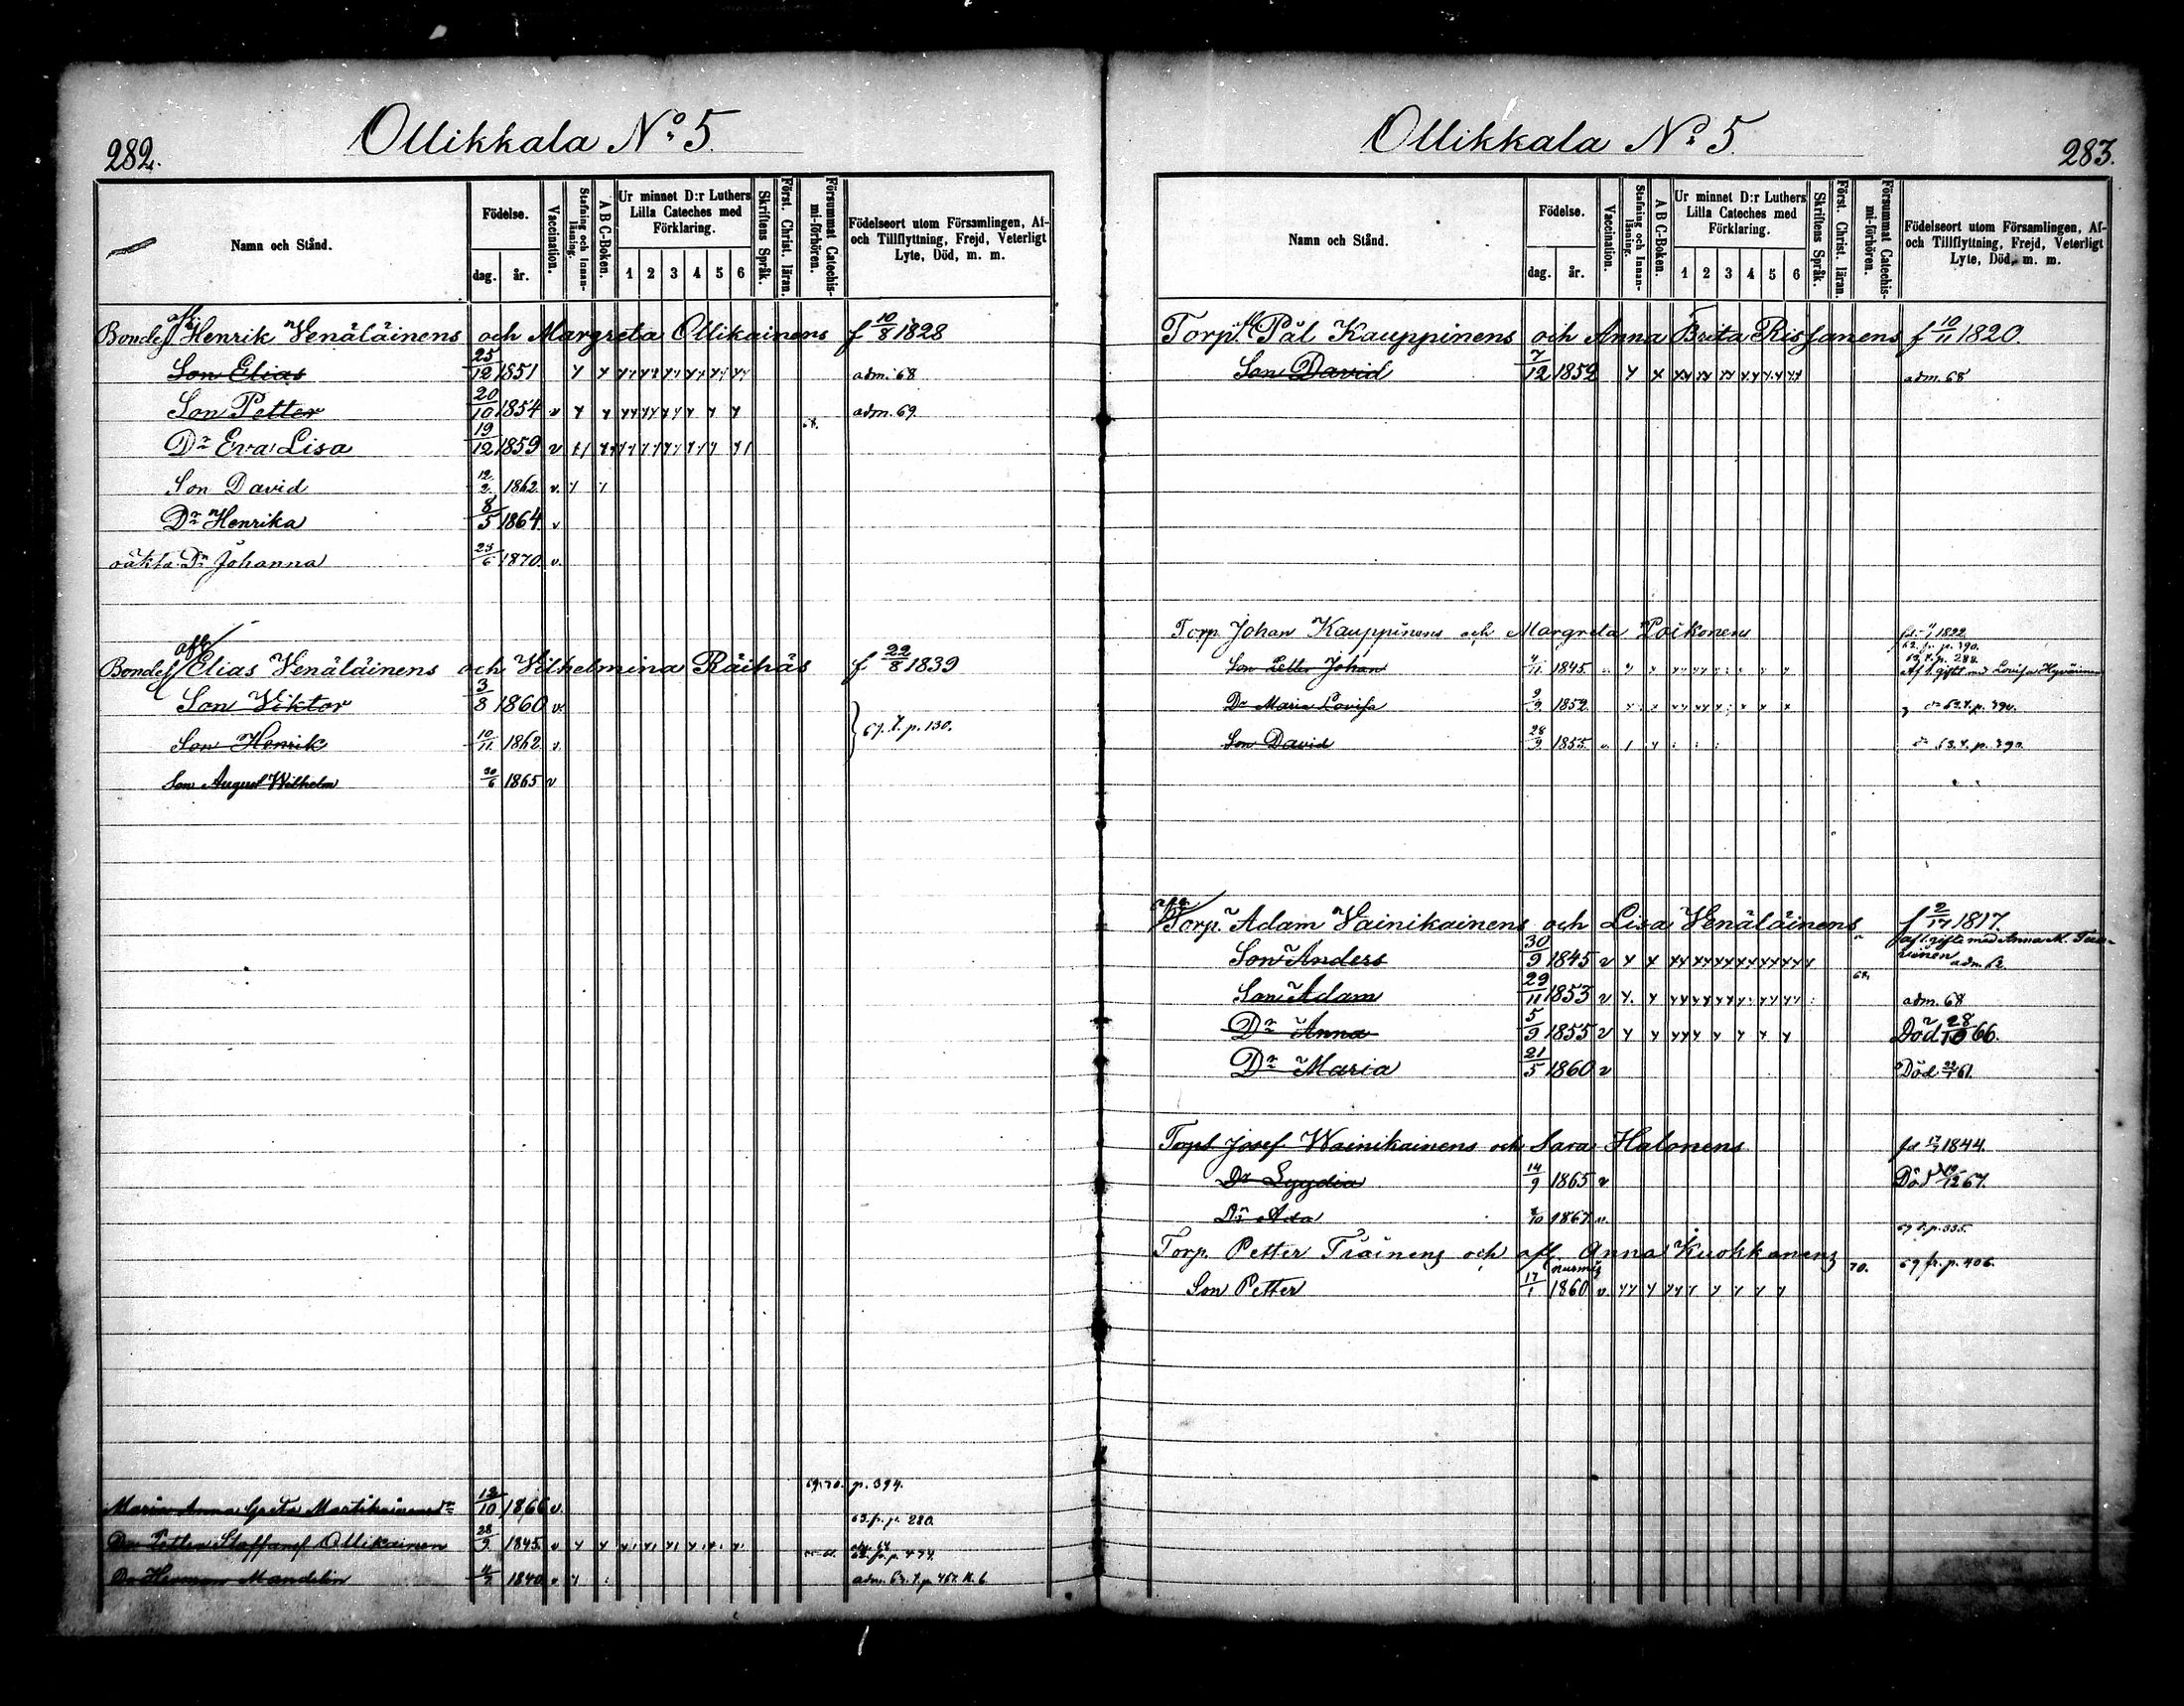 282.
Ollikkala No 5.
Namn och Stånd.
Födelse.
dag.
år.
Vaccination.
Stafning och Innan-läsning.
A B C-Boken.
Ur minnet D:r Luthers Lilla Cateches med Förklaring.
1 2 3 4 5 6
Skriftens Språk.
Först. Christ. läran.
Försummat Catechis-mi-förhören.
Födelseort utom Församlingen, Af- och Tillflyttning, Frejd, Veterligt Lyte, Död, m. m.
Bondes afl. Henrik Venäläinens och Margreta Ollikainens f 10/8 1828
Son Elias 25/12 1851 adm. 68
Son Petter 20/10 1854 v adm. 69.
68.
Dr Eva Lisa 19/12 1859 v
Son David 12/2 1862 v.
Dr Henrika 8/5 1864 v
oäkta Dr Johanna 25/6 1870 v.
Bondes afl Elias Venäläinens och Vilhelmina Räihäs f 22/8 1839
Son Viktor 3/8 1860 v.
67. t. p. 130.
Son Henrik 10/11 1862 v.
Son August Wilhelm 30/6 1865 v
69. 70. p. 394.
Maria Anna Greta Martikainens dr 12/10 1866 v.
63. fr. p. 280.
Dr Petter Staffans Ollikainen 28/9 1845 v
62. fr. p. 474.
Dr Herman Mandelin 1840 v adm. 63. t. p. 467. N. 6.
Ollikkala No 5.
283.
Namn och Stånd.
Födelse.
dag.
år.
Vaccination.
Stafning och Innan-läsning.
A B C-Boken.
Ur minnet D:r Luthers Lilla Cateches med Förklaring.
1 2 3 4 5 6
Skriftens Språk.
Först. Christ. läran.
Försummat Catechis-mi-förhören.
Födelseort utom Församlingen, Af- och Tillflyttning, Frejd, Veterligt Lyte, Död, m. m.
Torp. Pål Kauppinens och Anna Brita Rissanens f 10/11 1820.
Son David 7/12 1852 adm. 68
Torp. Johan Kauppinens och Margreta Poikonens 1822
62. fr. p. 290.
63. t. p. 288.
Son Petter Johan 4/11 1845 gift med Lovisa Hyvärinen
Dr Maria Lovisa 9/9 1852 63. t. p. 290.
Son David 28/9 1855 63. t. p. 290.
Torp. Adam Vainikainens och Lisa Venäläinens f 2/17 1817.
Son Anders 30/9 1845 v gifte med Anna M. adm. 62.
68.
Son Adam 29/11 1853 v adm. 68
Dr Anna 5/9 1855 v Död 28/10 66.
Dr Maria 21/5 1860 v Död 61.
Torps Josef Wainikainens och Sara Halonens fd 1844.
Dr Lyydia 14/9 1865 v Död 12 67.
Dr Ada 1867 v.
69 t. p. 335.
Torp. Petter Träinens och afl. Anna Kuokkanens 70. 69 fr. p. 406.
Son Petter 17/1 1860 v.